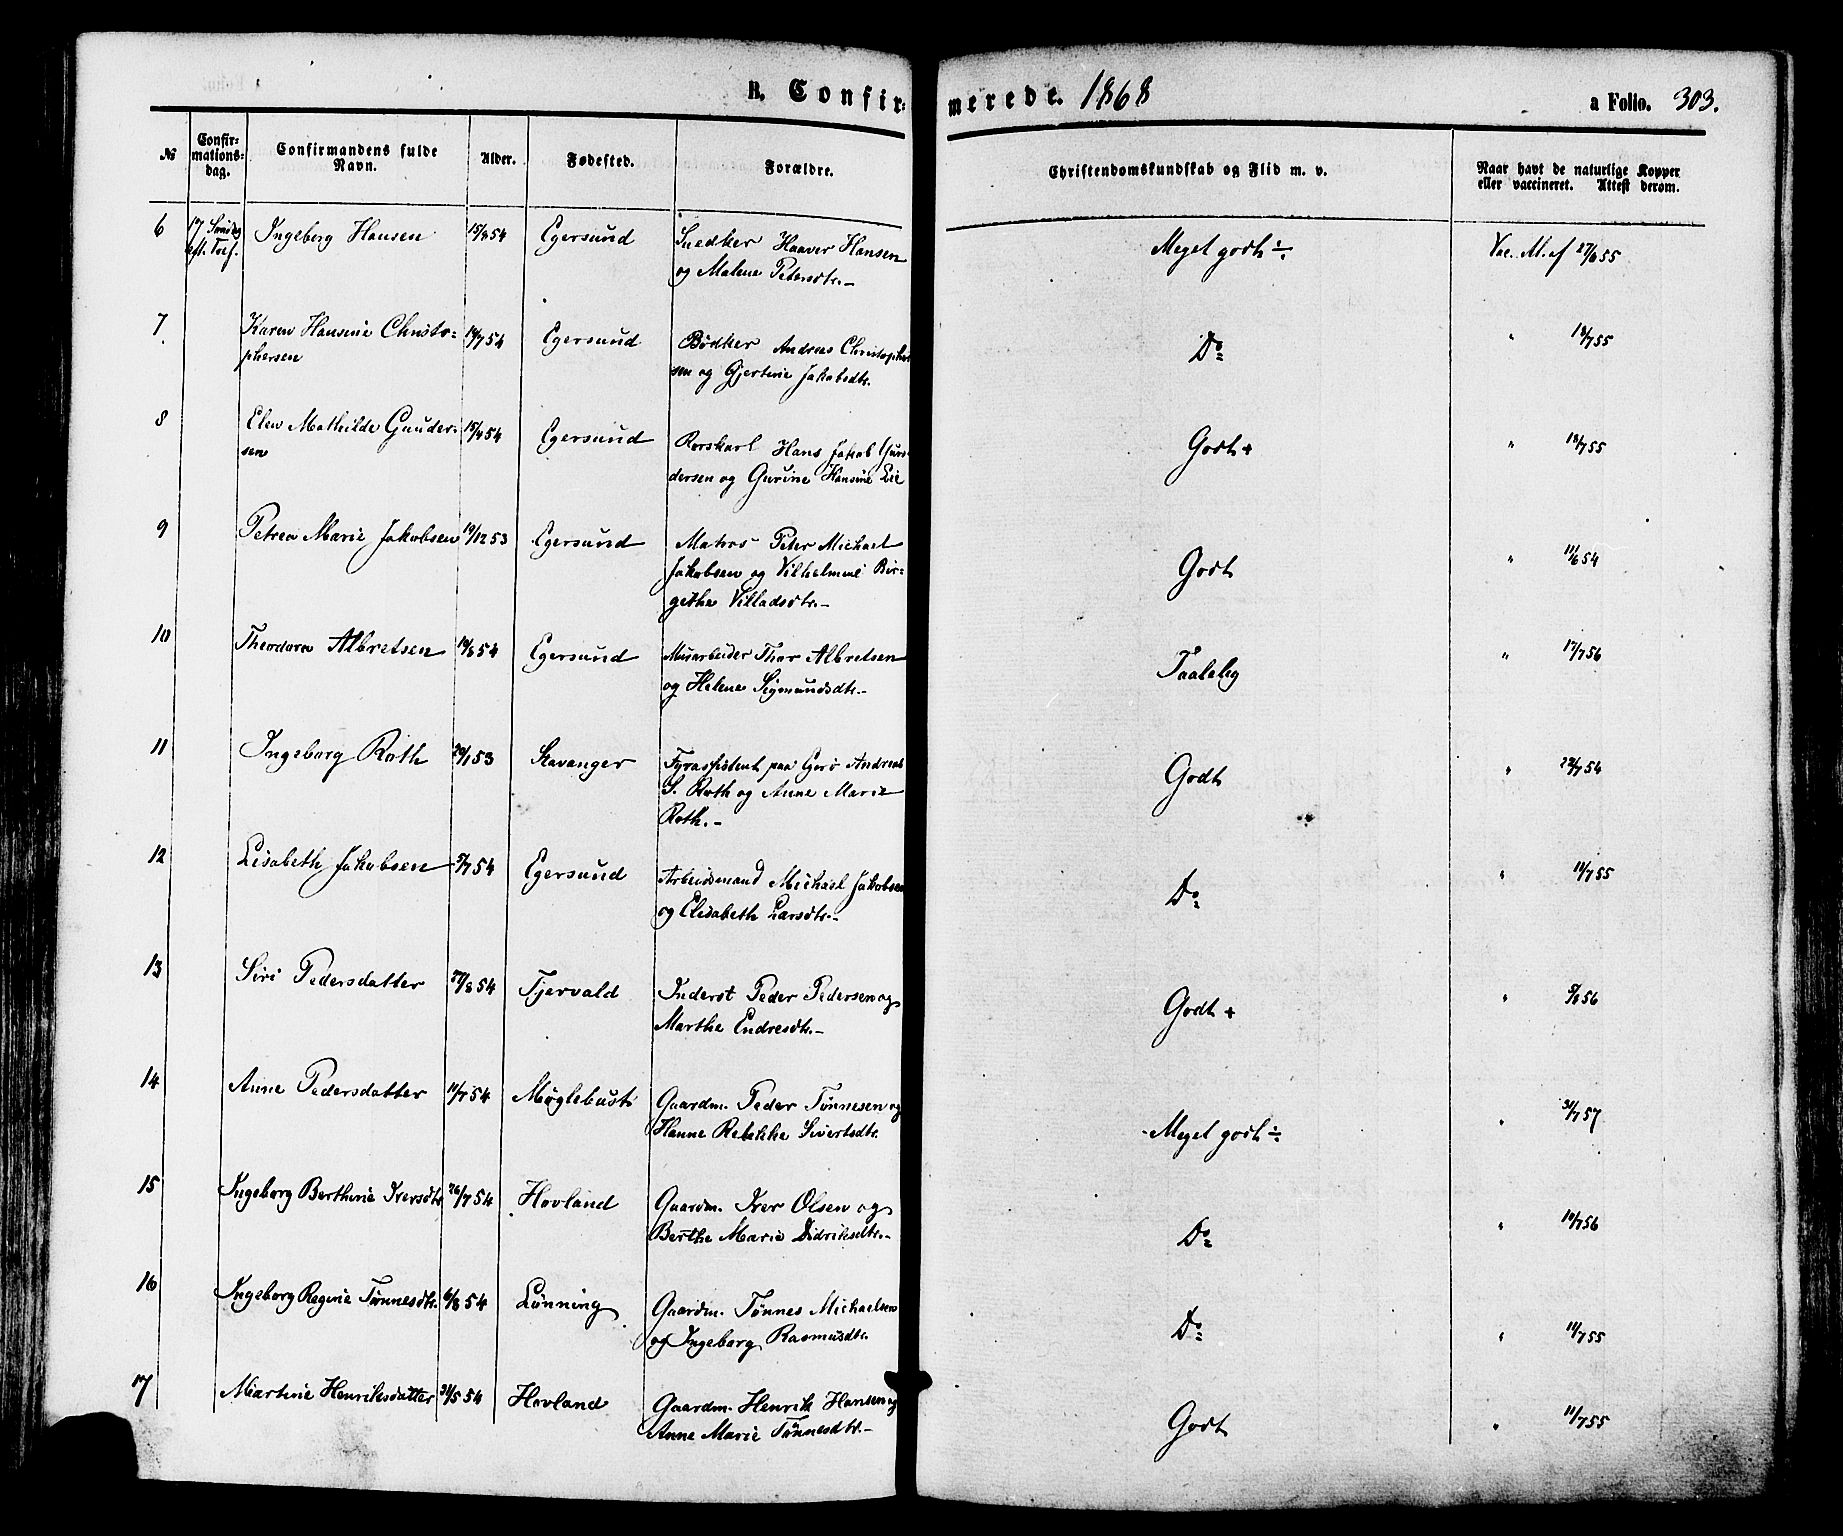 B. Confir-
merede. 1868
a Folio. 303.
№
Confir-
mations-
dag.
Confirmandens fulde
Navn.
Alder.
Fødested.
Forældre.
Christendomskundskab og Flid m. v.
Naar havt de naturlige Kopper
eller vaccineret. Attest derom.
6 17 Søndag Ingeborg Hansen 15/8 54 Egersund Snedker Haaver Hansen Meget godt ÷ Vac. 27/6 55
eft. Tref. og Malene Petersdtr.
7 Karen Hansine Christo= 14/7 54 Egersund Bødker Andreas Christopher Do " 18/7 55
phersen sen og Gjertine Jakobsdtr.
8 Elen Mathilde Gunder- 15/4 54 Egersund Hans Jakob Gun Godt + " 18/7 55
sen dersen og Gurine Hansine Lie
9 Petrea Marie Jakobsen 19/12 53 Egersund Matros Peter Michael Godt " 11/6 54
Jakobsen og Vilhelmine Bir-
githe Villadsdtr.
10 Theodora Albretsen 19/8 54 Egersund Thor Albretsen Taalelig " 17/7 56
og Helene Sigmundsdtr.
11 Ingeborg Roth 29/1 53 Stavanger Fyrassistent paa Andreas Godt " 22/7 54
S. Roth og Anne Marie
Roth.
12 Lisabeth Jakobsen 5/7 54 Egersund Arbeidsmand Michael Jakobsen Do " 11/7 55
og Elisabeth Larsdtr.
13 Siri Pedersdatter 27/8 54 Tjervald Inderst Peder Pedersen og Godt + " 5/8 56
Marthe Endresdtr.
14 Anne Pedersdatter 11/7 54 Møglebust Gaardm. Peder Tønnesen og Meget godt ÷ " 31/7 57
Hanne Rebekke Sivertsdtr.
15 Ingeborg Berthine Iversdtr 26/7 54 Hovland Gaardm. Iver Olsen og Do " 10/7 56
Berthe Marie Didriksdtr.
16 Ingeborg Regine Tønnesdtr. 6/8 54 Lønning Gaardm. Tønnes Michaelsen Do " 11/7 55
og Ingeborg Rasmusdtr.
17 Martine Henriksdatter 31/5 54 Hovland Gaardm. Henrik Hansen og Godt " 11/7 55
Anne Marie Tønnesdtr.